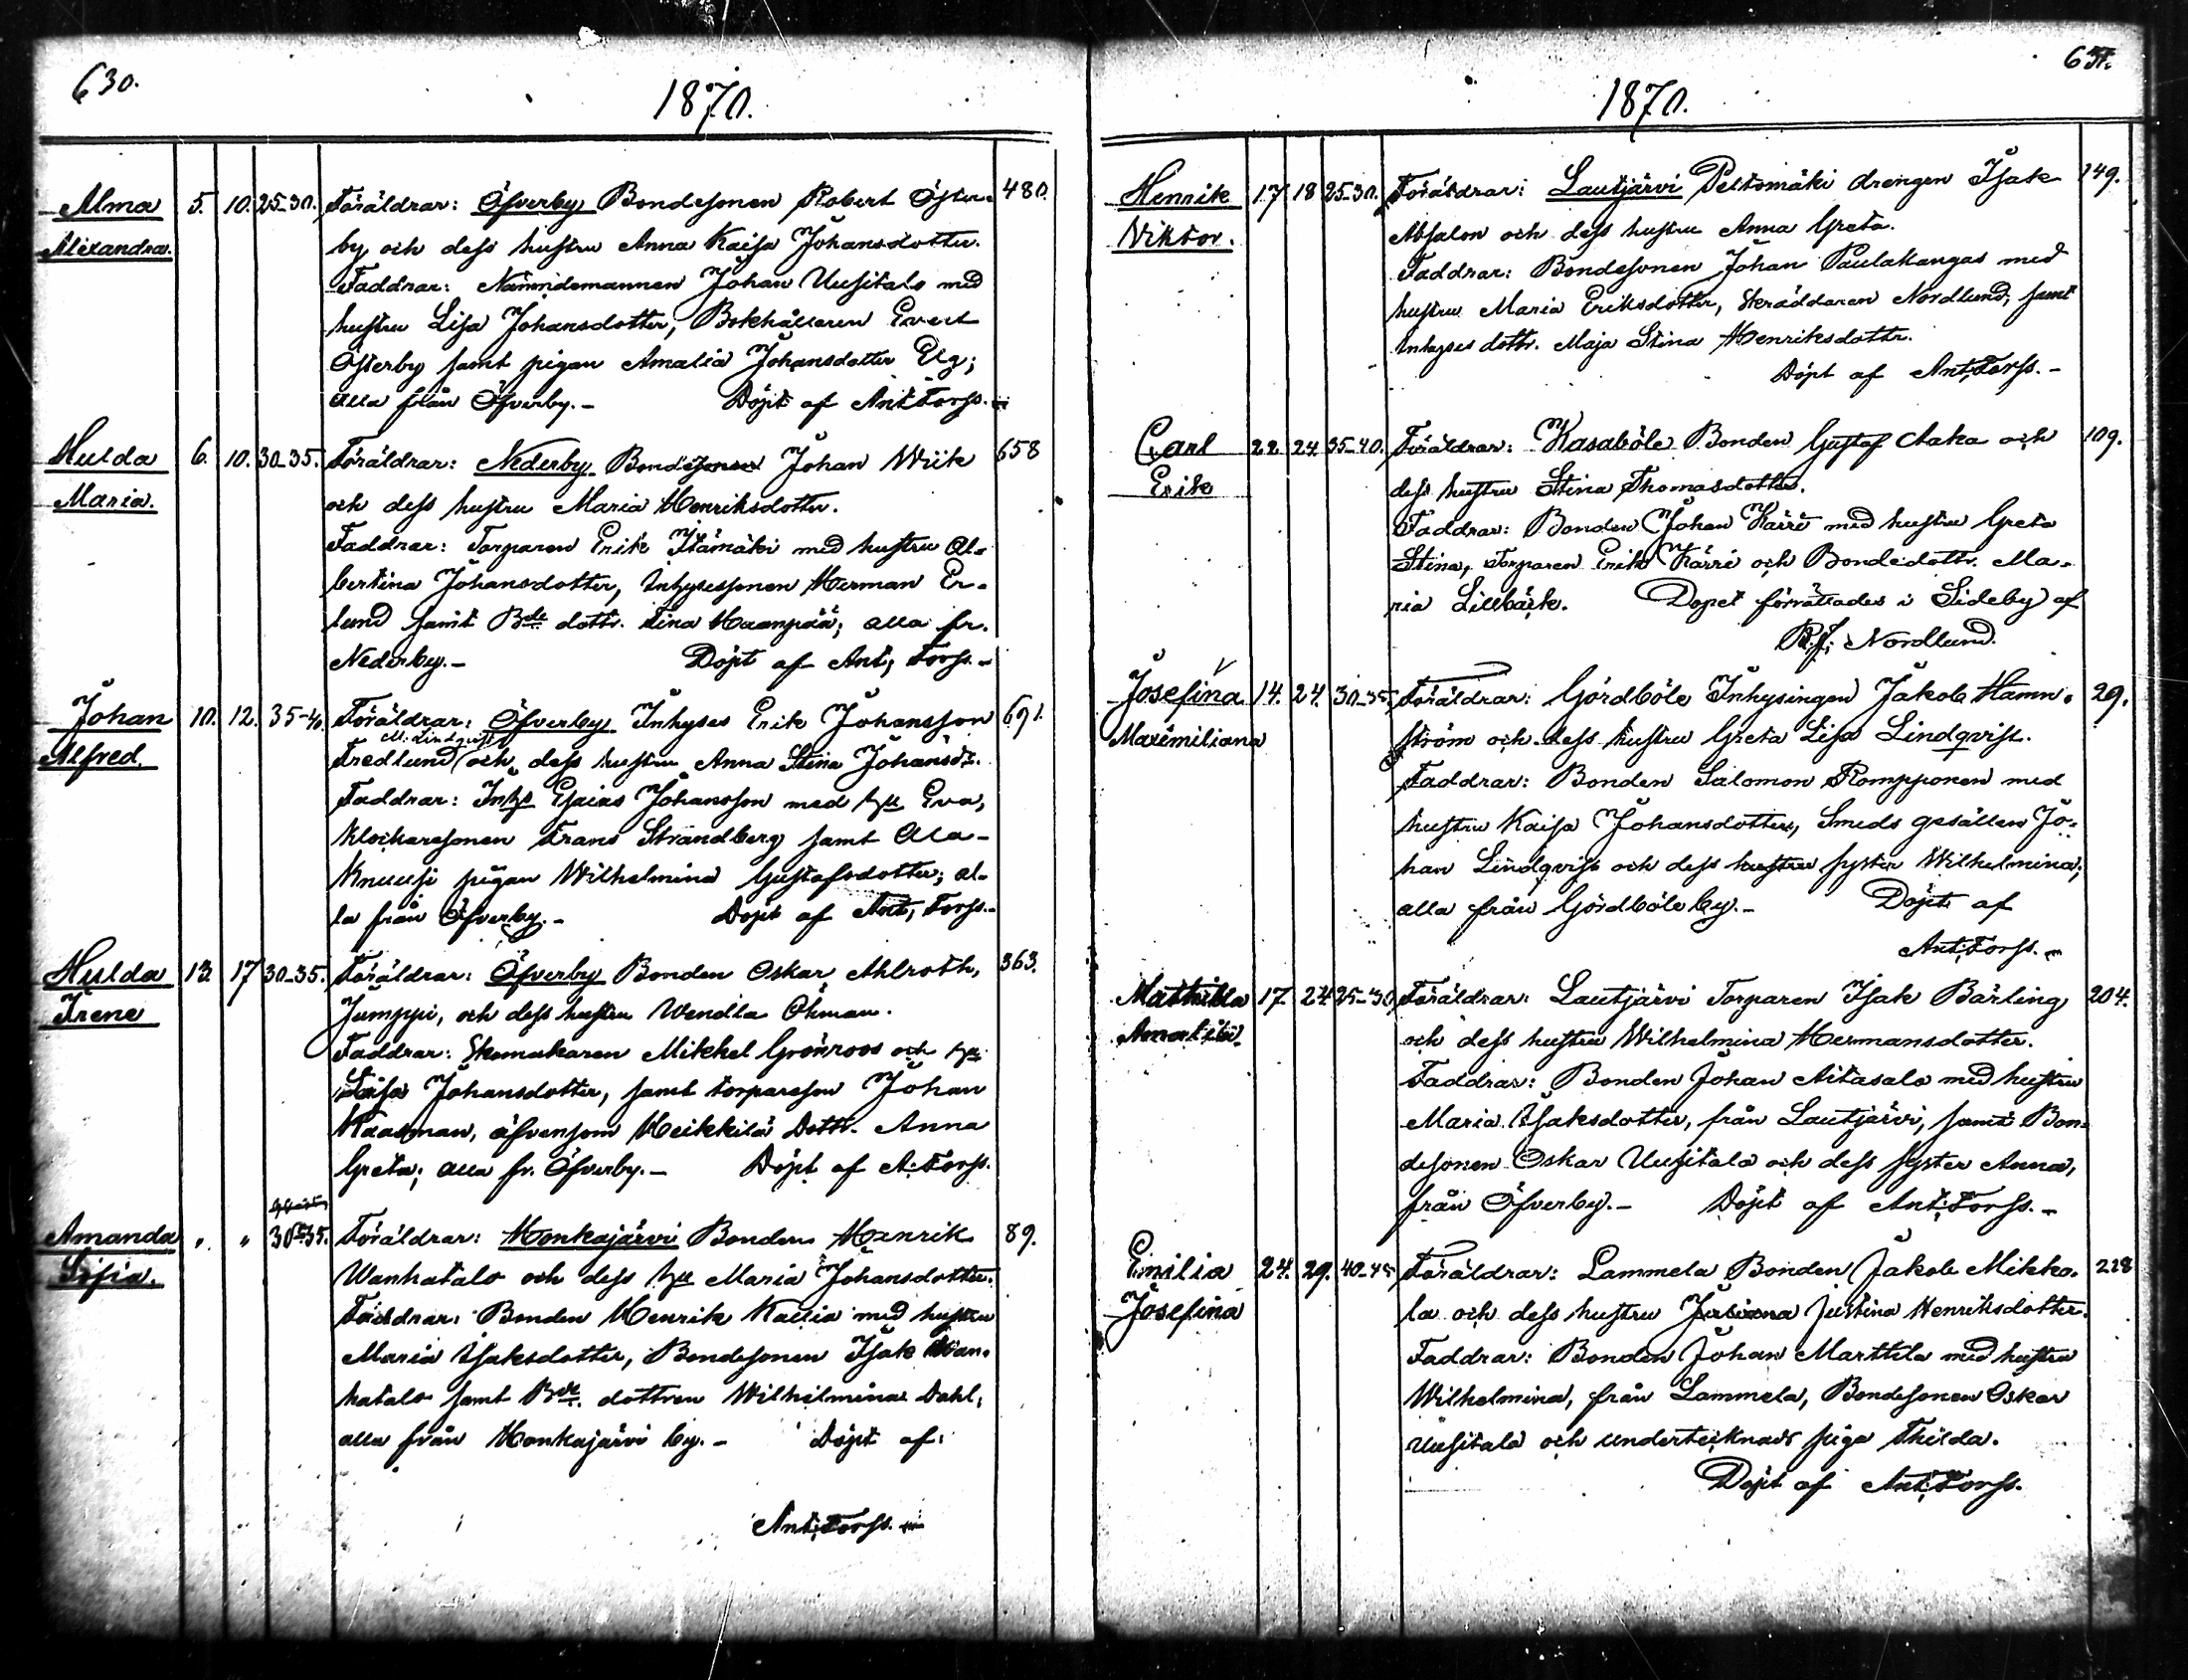 630.
1870.
Alma 5. 10. 25-30. Föräldrar: Öfverby Bondesonen Robert Öster- 480.
Alexandra. by och dess hustru Anna Kaisa Johansdotter.
Faddrar: Nämndemannen Johan Uusitalo med
hustru Lisa Johansdotter, Bokhållaren Evert
Österby samt pigan Amalia Johansdotter Elg;
alla från Öfverby.- Döpt af Ant. Forss.-
Hulda 6. 10. 30-35. Föräldrar: Nederby Bonde Johan Wiik 658
Maria. och dess hustru Maria Henriksdotter.
Faddrar: Torparen Erik Itämäki med hustru Al-
bertina Johansdotter, Inhysessonen Herman Er-
lund samt Bde dottr. Tina Haanpää; alla fr.
Nederby.- Döpt af Ant. Forss.-
Johan 10. 12. 35-40. Föräldrar: Öfverby Inhyses Erik Johansson 691.
M. Lindqvist
Alfred. Fredlund och dess hustru Anna Stina Johansdr.
Faddrar: Inhs Esaias Johansson med hu Eva,
Klockaresonen Frans Strandberg samt Ala-
Knuusi pigan Wilhelmina Gustafsdotter; al-
la från Öfverby.- Döpt af Ant. Forss.-
Hulda 13. 17 30-35. Föräldrar: Öfverby Bonden Oskar Ahlroth, 363.
Irene Jumppi, och dess hustru Wendla Öhman.
Faddrar: Skomakaren Mikkel Grönroos och hu
Caisa Johansdotter, samt torpareson Johan
Kaasman, äfvensom Heikkilä Dottr. Anna
Greta; alla fr. Öfverby.- Döpt af A. Forss.
Amanda " " 30-35. Föräldrar: Honkajärvi Bonden Henrik 89.
Sofia. Wanhatalo och dess hu Maria Johansdotter.
Faddrar: Bonden Henrik Kallia med hustru
Maria Isaksdotter, Bondesonen Isak Wan-
hatalo samt Bde. dottren Wilhelmina Dahl,
alla från Honkajärvi by.- Döpt af:
Ant. Forss.-
631.
1870.
Henrik 17 18 25-30. Föräldrar: Lautjärvi Peltomäki drengen Isak 149.
Viktor. Absalon och dess hustru Anna Greta.
Faddrar: Bondesonen Johan Paulakangas med
hustru Maria Eriksdotter, Skräddaren Nordlund, samt
Inhyses dottr. Maja Stina Henriksdottr.
Döpt af Ant. Forss.-
Carl 22. 24 35-40. Föräldrar: Kasaböle Bonden Gustaf Aaka och 109.
Erik dess hustru Stina Thomasdotter.
Faddrar: Bonden Johan Kärri med hustru Greta
Stina, Torparen Erik Kärri och Bondedottr. Ma-
ria Lillbäck. Dopet förrättades i Sideby af
B. J. Nordlund.
Josefina 14. 24. 30-35. Föräldrar: Gördböle Inhysingen Jakob Hamn- 29.
Maximiliana ström och dess hustru Greta Lisa Lindqvist.
Faddrar: Bonden Salomon Rompponen med
hustru Kaisa Johansdotter, Smeds gesällen Jo-
han Lindqvist och dess hustru syster Wilhelmina;
alla från Gördböle by.- Döpt af
Ant. Forss.-
Mathilda 17. 24 25-30. Föräldrar: Lautjärvi Torparen Isak Bärling 204.
Amalia. och dess hustru Wilhelmina Hermansdotter.
Faddrar: Bonden Johan Aitasalo med hustru
Maria Isaksdotter, från Lautjärvi, samt Bon-
desonen Oskar Uusitalo och dess syster Anna,
från Öfverby.- Döpt af Ant. Forss.-
Emilia 24. 29. 40-45. Föräldrar: Lammela Bonden Jakob Mikko- 228
Josefina la och dess hustru Juliana Justina Henriksdotter.
Faddrar: Bonden Johan Marttila med hustru
Wilhelmina, från Lammela, Bondesonen Oskar
Uusitalo och undertecknads piga Thilda.
Döpt af Ant. Forss.